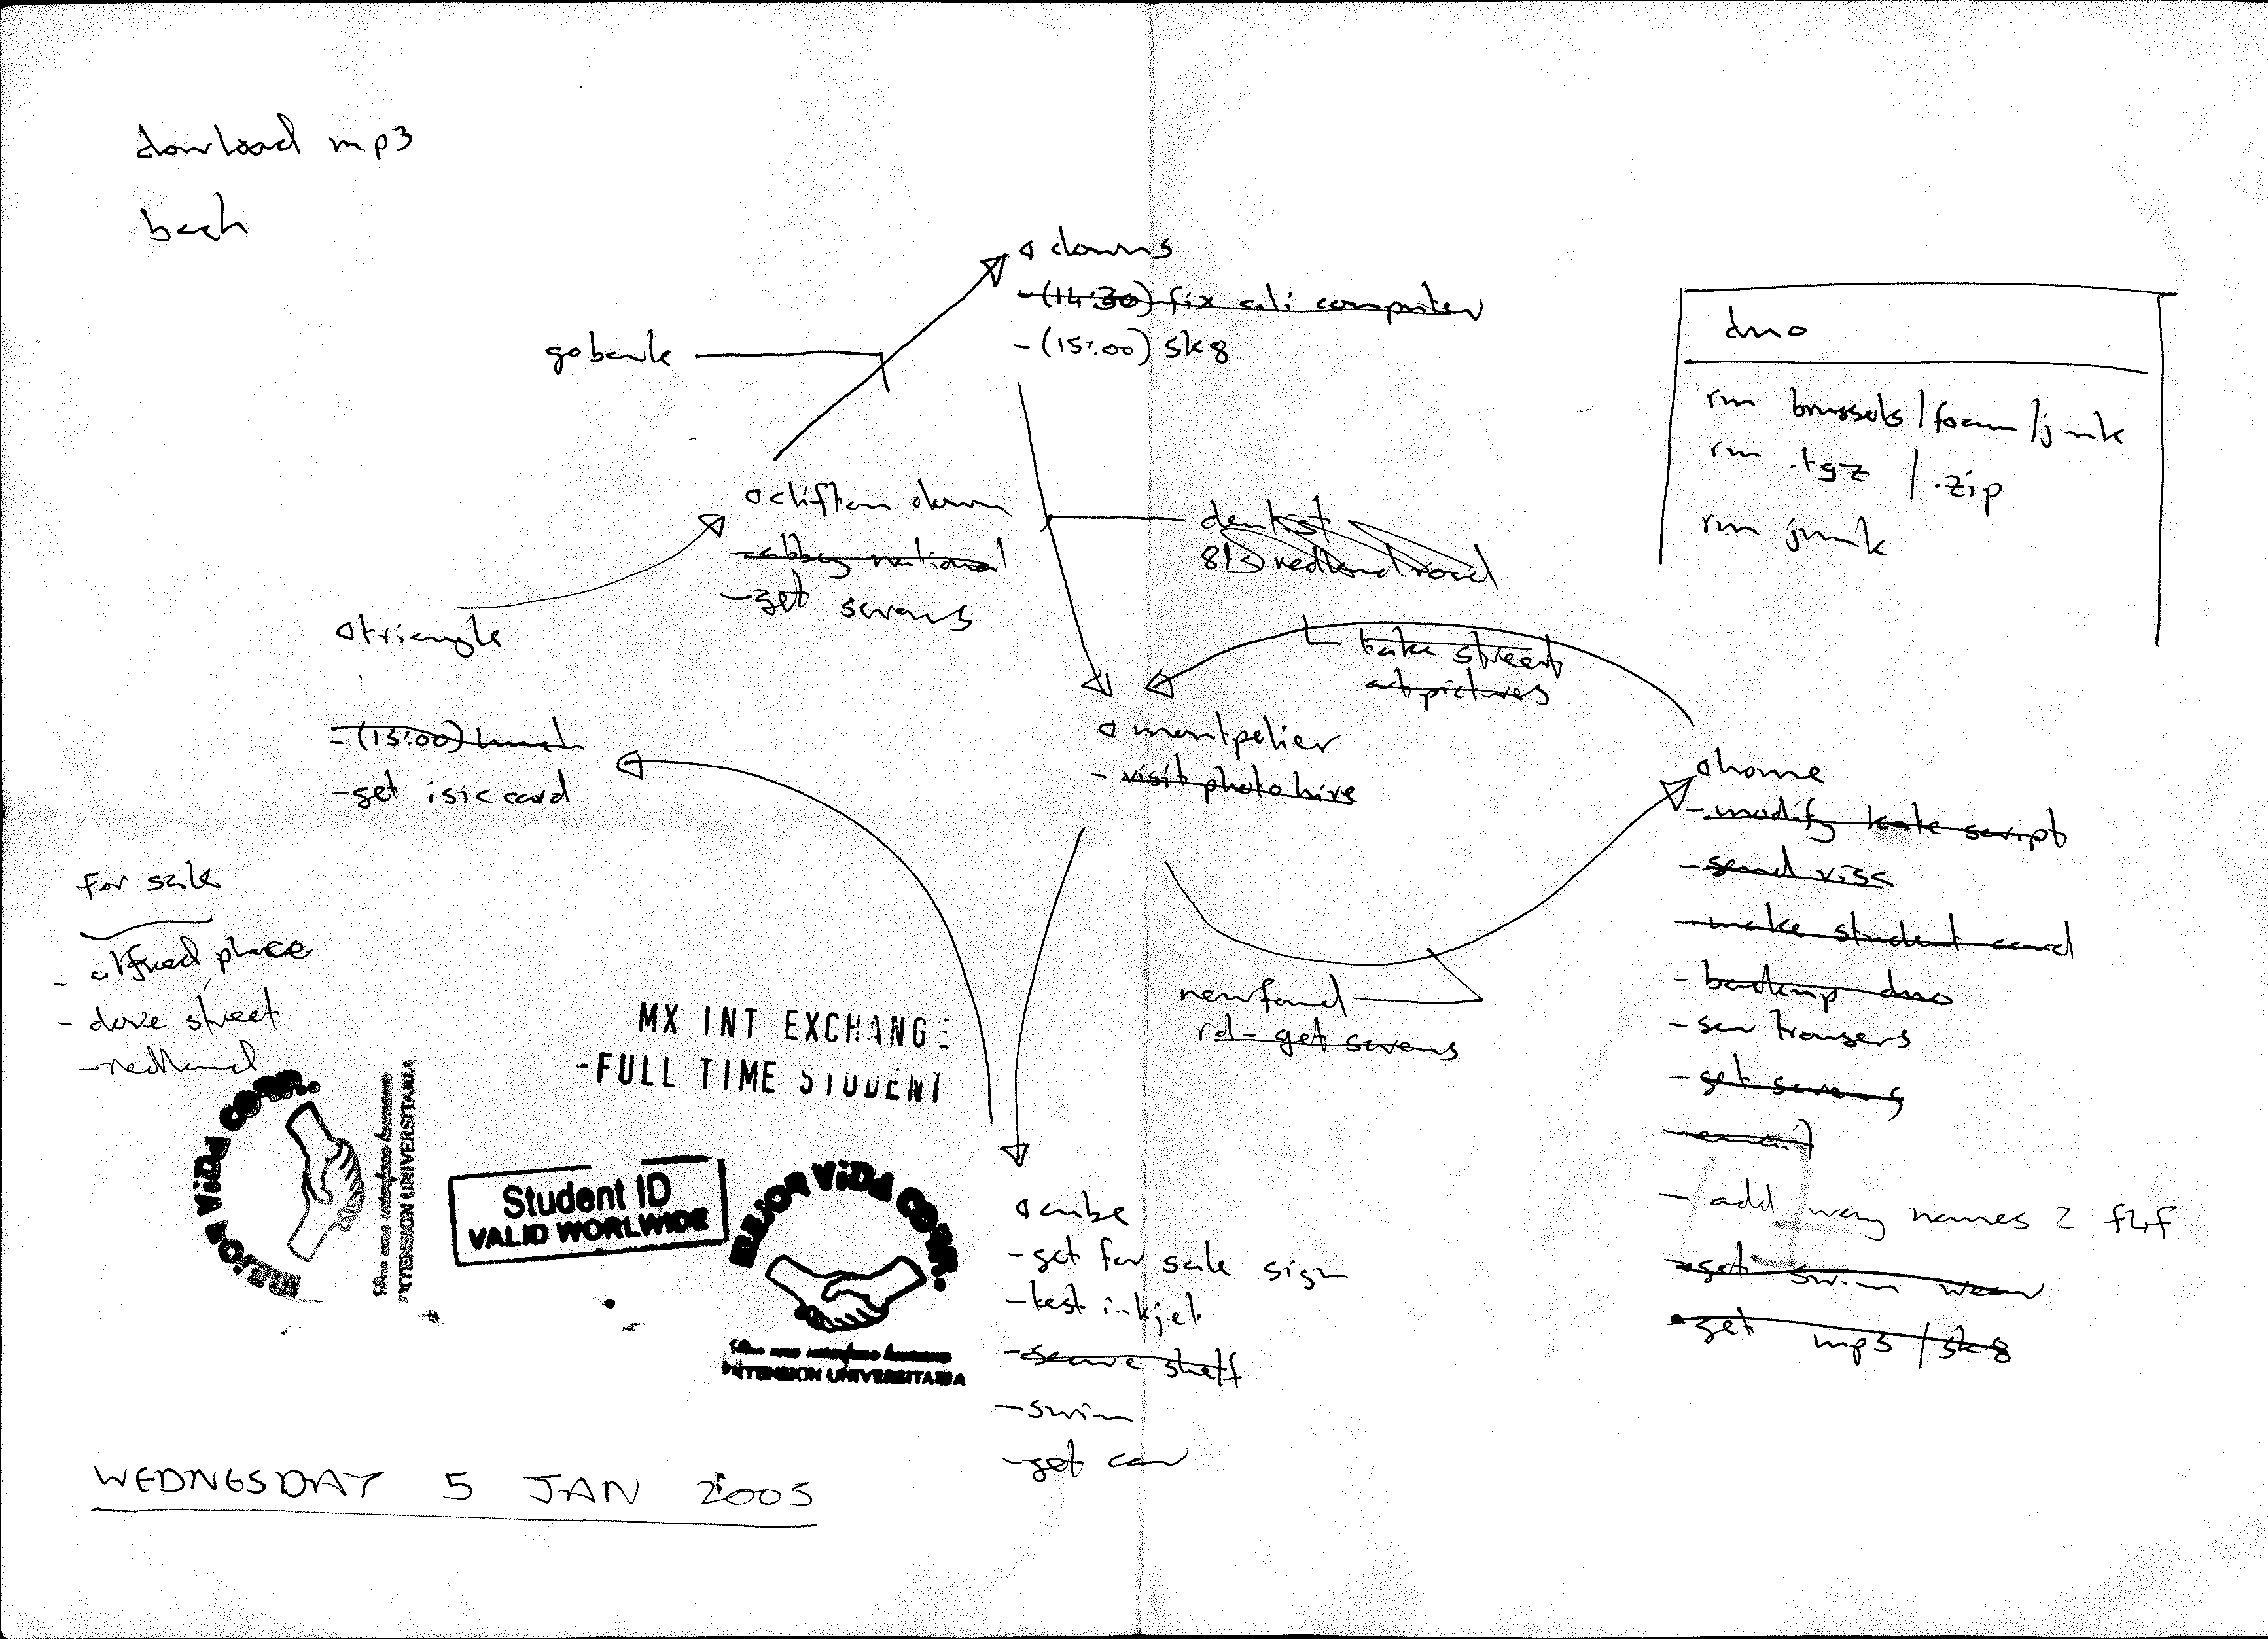 download mp3
bach
downs
-(14:30) fix ali computer
-(15:00) sk8
go bank
dmo
rm brussels/foam/junk
rm .tgz / .zip
rm junk
clifton down
-abbey national
-get screws
dentist
redland road
triangle
-(13:00) lunch
-get isic card
take street
art pictures
montpelier
- visit photo hire
home
-modify kate script
-send visa
-make student card
-backup dmo
-sew trousers
-get screws
-email
- add names 2 f2f
-get swim wear
-get mp3/sk8
newfound
rd - get screws
for sale
- alfred place
- dove street
- redland
MX INT EXCHANGE
-FULL TIME STUDENT
MEJOR ViDA CORP.
Por una interfase humana
INTENSION UNIVERSITARIA
Student ID
VALID WORLWIDE
MEJOR ViDA CORP.
Por una interfase humana
INTENSION UNIVERSITARIA
cube
-get for sale sign
-test inkjet
-secure shelf
-swim
-get car
WEDNESDAY 5 JAN 2005